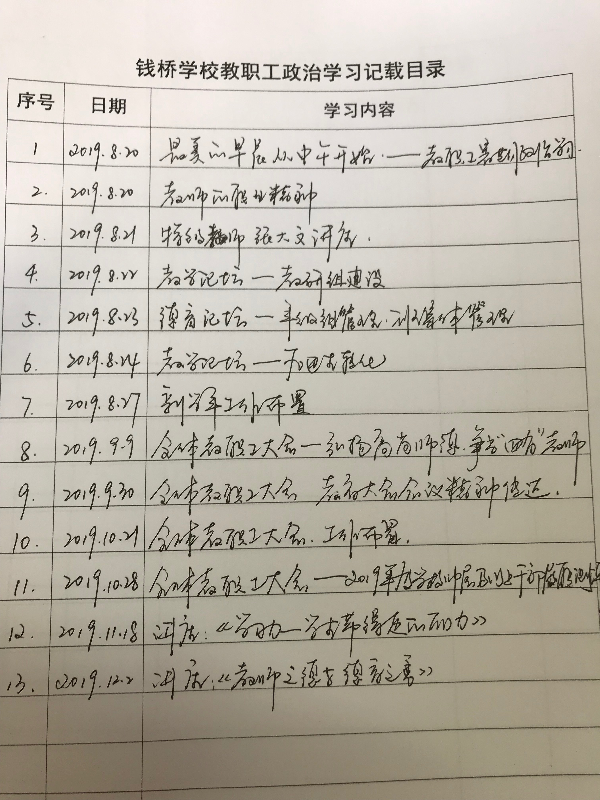 钱桥学校教职工政治学习记载目录
序号 日期 学习内容
1 2019.8.20 最美的早晨从中午开始——教职工暑期政治学习
2. 2019.8.20 教师的职业精神
3. 2019.8.21 特级教师张大文讲座.
4. 2019.8.22 教学论坛—教研组建设
5. 2019.8.23 德育论坛—年级组管理、班集体管理
6. 2019.8.24 教学论坛—
7. 2019.8.27 新学年工作布置
8. 2019.9.9 全体教职工大会—弘扬高尚师德,争当"四有"教师
9. 2019.9.30 全体教职工大会 教育大会会议精神传达.
10. 2019.10.21 全体教职工大会.工作布置.
11. 2019.10.28 全体教职工大会——2019年度学校中层及以上干部
12. 2019.11.18 讲座:《学习力—学术
13. 2019.12.2 讲座:《教师之德与德育之勇》